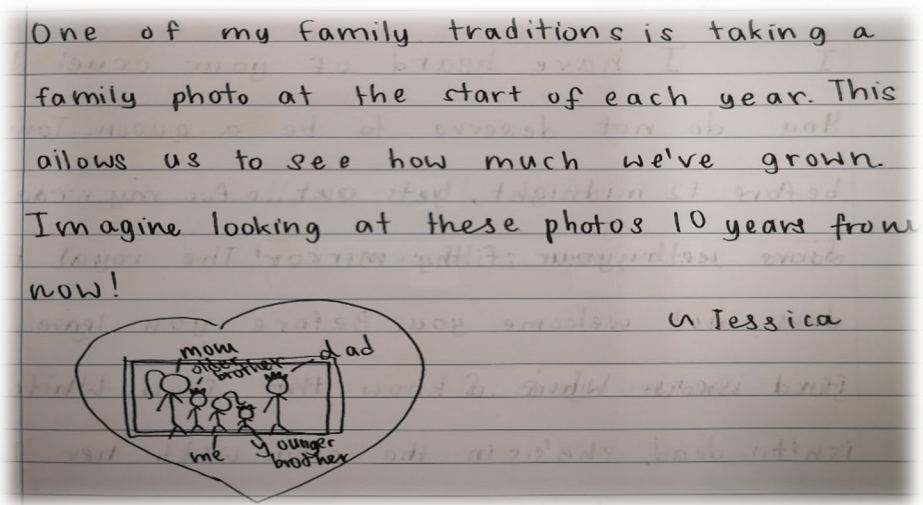 One of my family traditions is taking a
family photo at the start of each year. This
allows us to see how much we've grown.
Imagine looking at these photos 10 years from
now!
Jessica
mom
dad
older
brother
me
younger
brother